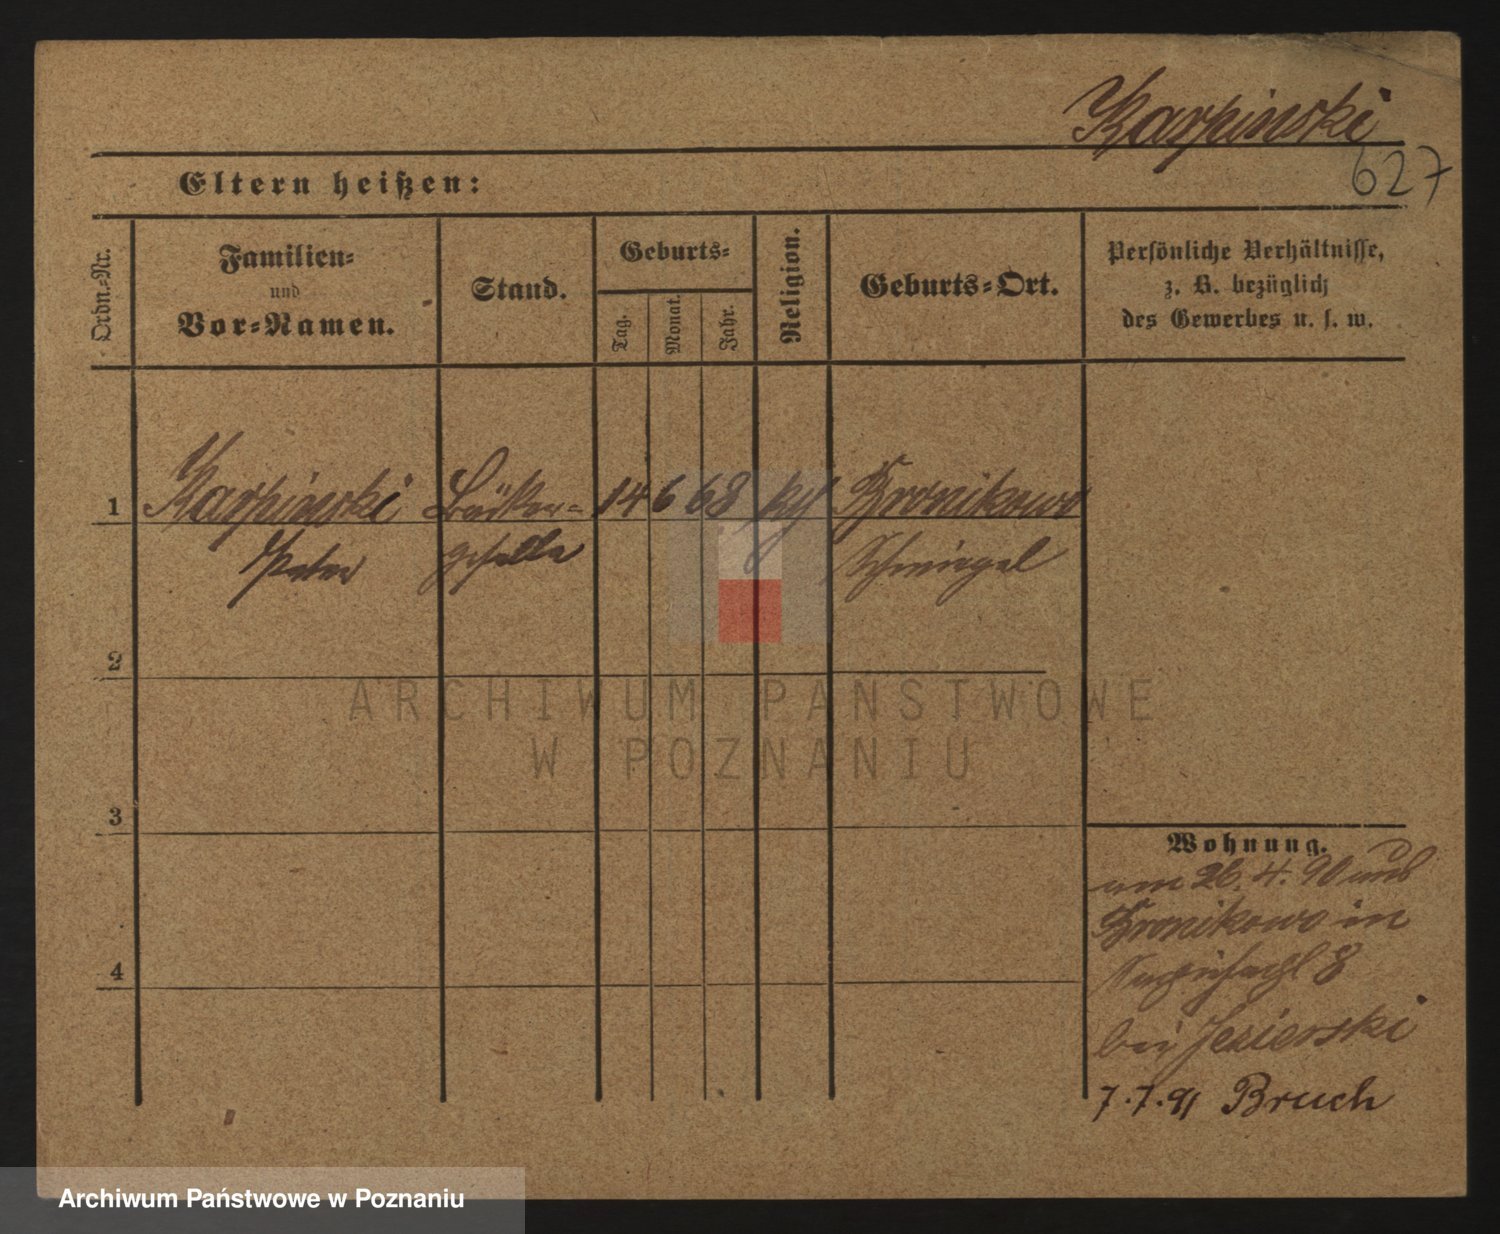 Karpinski
627
Eltern heißen:
Ordn.-Nr.
Familien-
und
Vor-Namen.
Stand.
Geburts-
Tag.
Monat.
Jahr.
Religion.
Geburts-Ort.
Persönliche Verhältnisse,
z. B. bezüglich
des Gewerbes u. s. w.
1 Karpinski Bäcker- 14 6 68 Bronikowo
Peter geselle Schmiegel
2
3
4
Wohnung.
am 26. 4. 90 aus
Bronikowo in
8
bei Jezierski
7.7.91 Bruch
ARCHIWUM PAŃSTWOWE
W POZNANIU
Archiwum Państwowe w Poznaniu